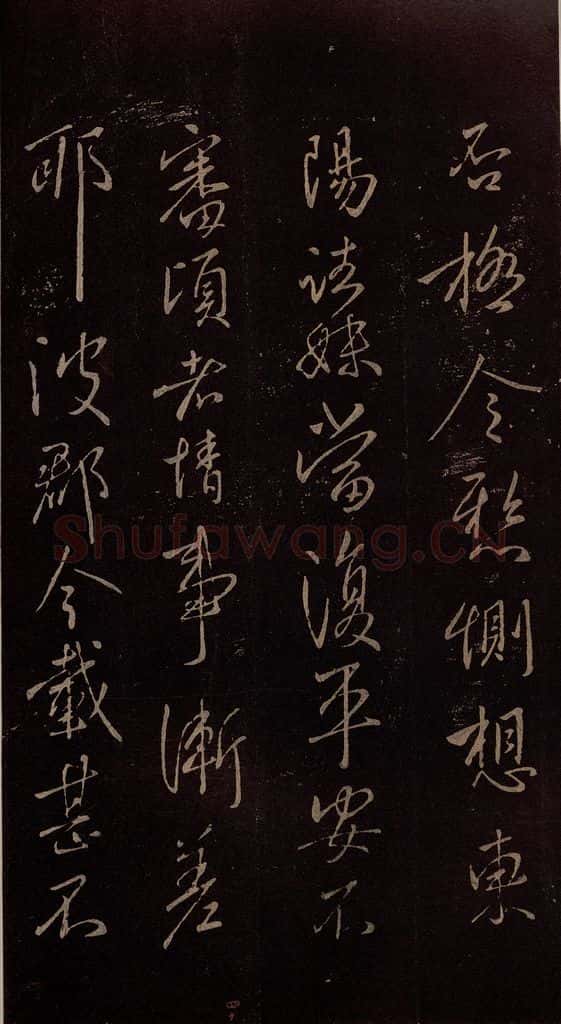 否極令愁惻想東
陽諸妹當復平安不
審頃者情事漸差
耶彼郡今載甚不
Shufawang.CN
四十